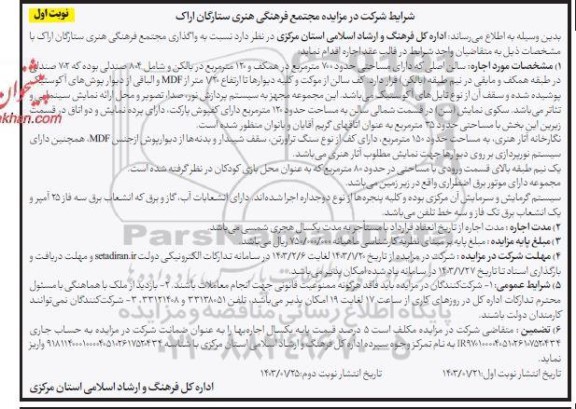 نوبت اول
شرایط شرکت در مزایده مجتمع فرهنگی هنری ستارگان اراک
بدین وسیله به اطلاع می‌رساند: اداره کل فرهنگ و ارشاد اسلامی استان مرکزی در نظر دارد نسبت به واگذاری مجتمع فرهنگی هنری ستارگان اراک با
مشخصات ذیل به متقاضیان واجد شرایط در قالب عقد اجاره اقدام نماید.
۱) مشخصات مورد اجاره: سالن اصلی که دارای مساحتی حدود ۷۰۰ مترمربع در همکف و ۱۲۰ مترمربع در بالکن و شامل ۸۰۴ صندلی بوده که ۷۰۲ صندلی
در طبقه همکف و مابقی در نیم طبقه (بالکن) قرار دارد. کف سالن از موکت و کلیه دیوارها تا ارتفاع ۷/۲۰ متر از MDF و الباقی از دیوارپوش‌های آکوستیک
پوشیده شده و سقف آن از نوع تایل‌های آکوستیک می‌باشد. این مجموعه مجهز به سیستم پردازش نور، صدا، تصویر و محل ارائه نمایش سینمایی و
تئاتر می‌باشد. سکوی نمایش (سن) در قسمت شمالی سالن به مساحت حدود ۱۲۰ مترمربع دارای کفپوش پارکت، دارای پرده نمایش و دو اتاق در قسمت
زیرین این بخش با مساحتی حدود ۳۵ مترمربع به عنوان اتاقهای گریم آقایان و بانوان منظور شده است.
نگارخانه آثار هنری، به مساحت حدود ۱۵۰ مترمربع، دارای کف از نوع سنگ تراورتن، سقف شیبدار و بدنه‌ها از دیوارپوش ازجنس MDF، همچنین دارای
سیستم نورپردازی بر روی دیوارها جهت نمایش مطلوب آثار هنری می‌باشد.
یک نیم طبقه بالای قسمت ورودی با مساحتی در حدود ۸۰ مترمربع که به عنوان محل بازی کودکان در نظر گرفته شده است.
مجموعه دارای موتور برق اضطراری واقع در زیرزمین می‌باشد.
سیستم گرمایش و سرمایش آن مرکزی بوده و کلیه پنجره‌ها از نوع دوجداره اجرا شده‌اند. دارای انشعابات آب، گاز و برق که انشعاب برق سه فاز ۲۵ آمپر و
یک انشعاب برق تک فاز و سه خط تلفن می‌باشد.
۲) مدت اجاره: مدت اجاره از تاریخ انعقاد قرارداد با مستأجر به مدت یکسال هجری شمسی می‌باشد.
۳) مبلغ پایه مزایده: مبلغ پایه بر مبنای نظریه کارشناسی ماهیانه ۷۵۰/۰۰۰/۰۰۰ ریال می‌باشد.
۴) مهلت شرکت در مزایده: شرکت در مزایده از تاریخ ۱۴۰۳/۷/۲۰ لغایت ۱۴۰۳/۲/۶ در سامانه تدارکات الکترونیکی دولت setadiran.ir و مهلت دریافت و
بارگذاری اسناد تا تاریخ ۱۴۰۳/۷/۲۷ در سامانه یاد شده امکان‌پذیر می‌باشد.
۵) شرایط عمومی: ۱- شرکت‌کنندگان در مزایده باید فاقد هرگونه ممنوعیت قانونی جهت انجام معاملات باشند. ۲- بازدید از ملک با هماهنگی با مسئول
محترم تدارکات اداره کل در روزهای کاری از ساعت ۱۷ لغایت ۱۹ امکان پذیر می‌باشد، تلفن ۳۳۱۳۸۰۵۱ و ۳۳۱۲۱۴۰۸. ۳- شرکت‌کنندگان نمی‌توانند
کارمندان دولت باشند.
۶) تضمین: متقاضی شرکت در مزایده مکلف است ۵ درصد قیمت پایه یکسال اجاره‌بها را به عنوان ضمانت شرکت در مزایده به حساب جاری
به نام تمرکز وجوه سپرده اداره کل فرهنگ و ارشاد اسلامی استان مرکزی با شناسه واریز
نماید.
تاریخ انتشار نوبت اول: ۱۴۰۳/۰۷/۲۱ تاریخ انتشار نوبت دوم: ۱۴۰۳/۰۷/۲۵
اداره کل فرهنگ و ارشاد اسلامی استان مرکزی